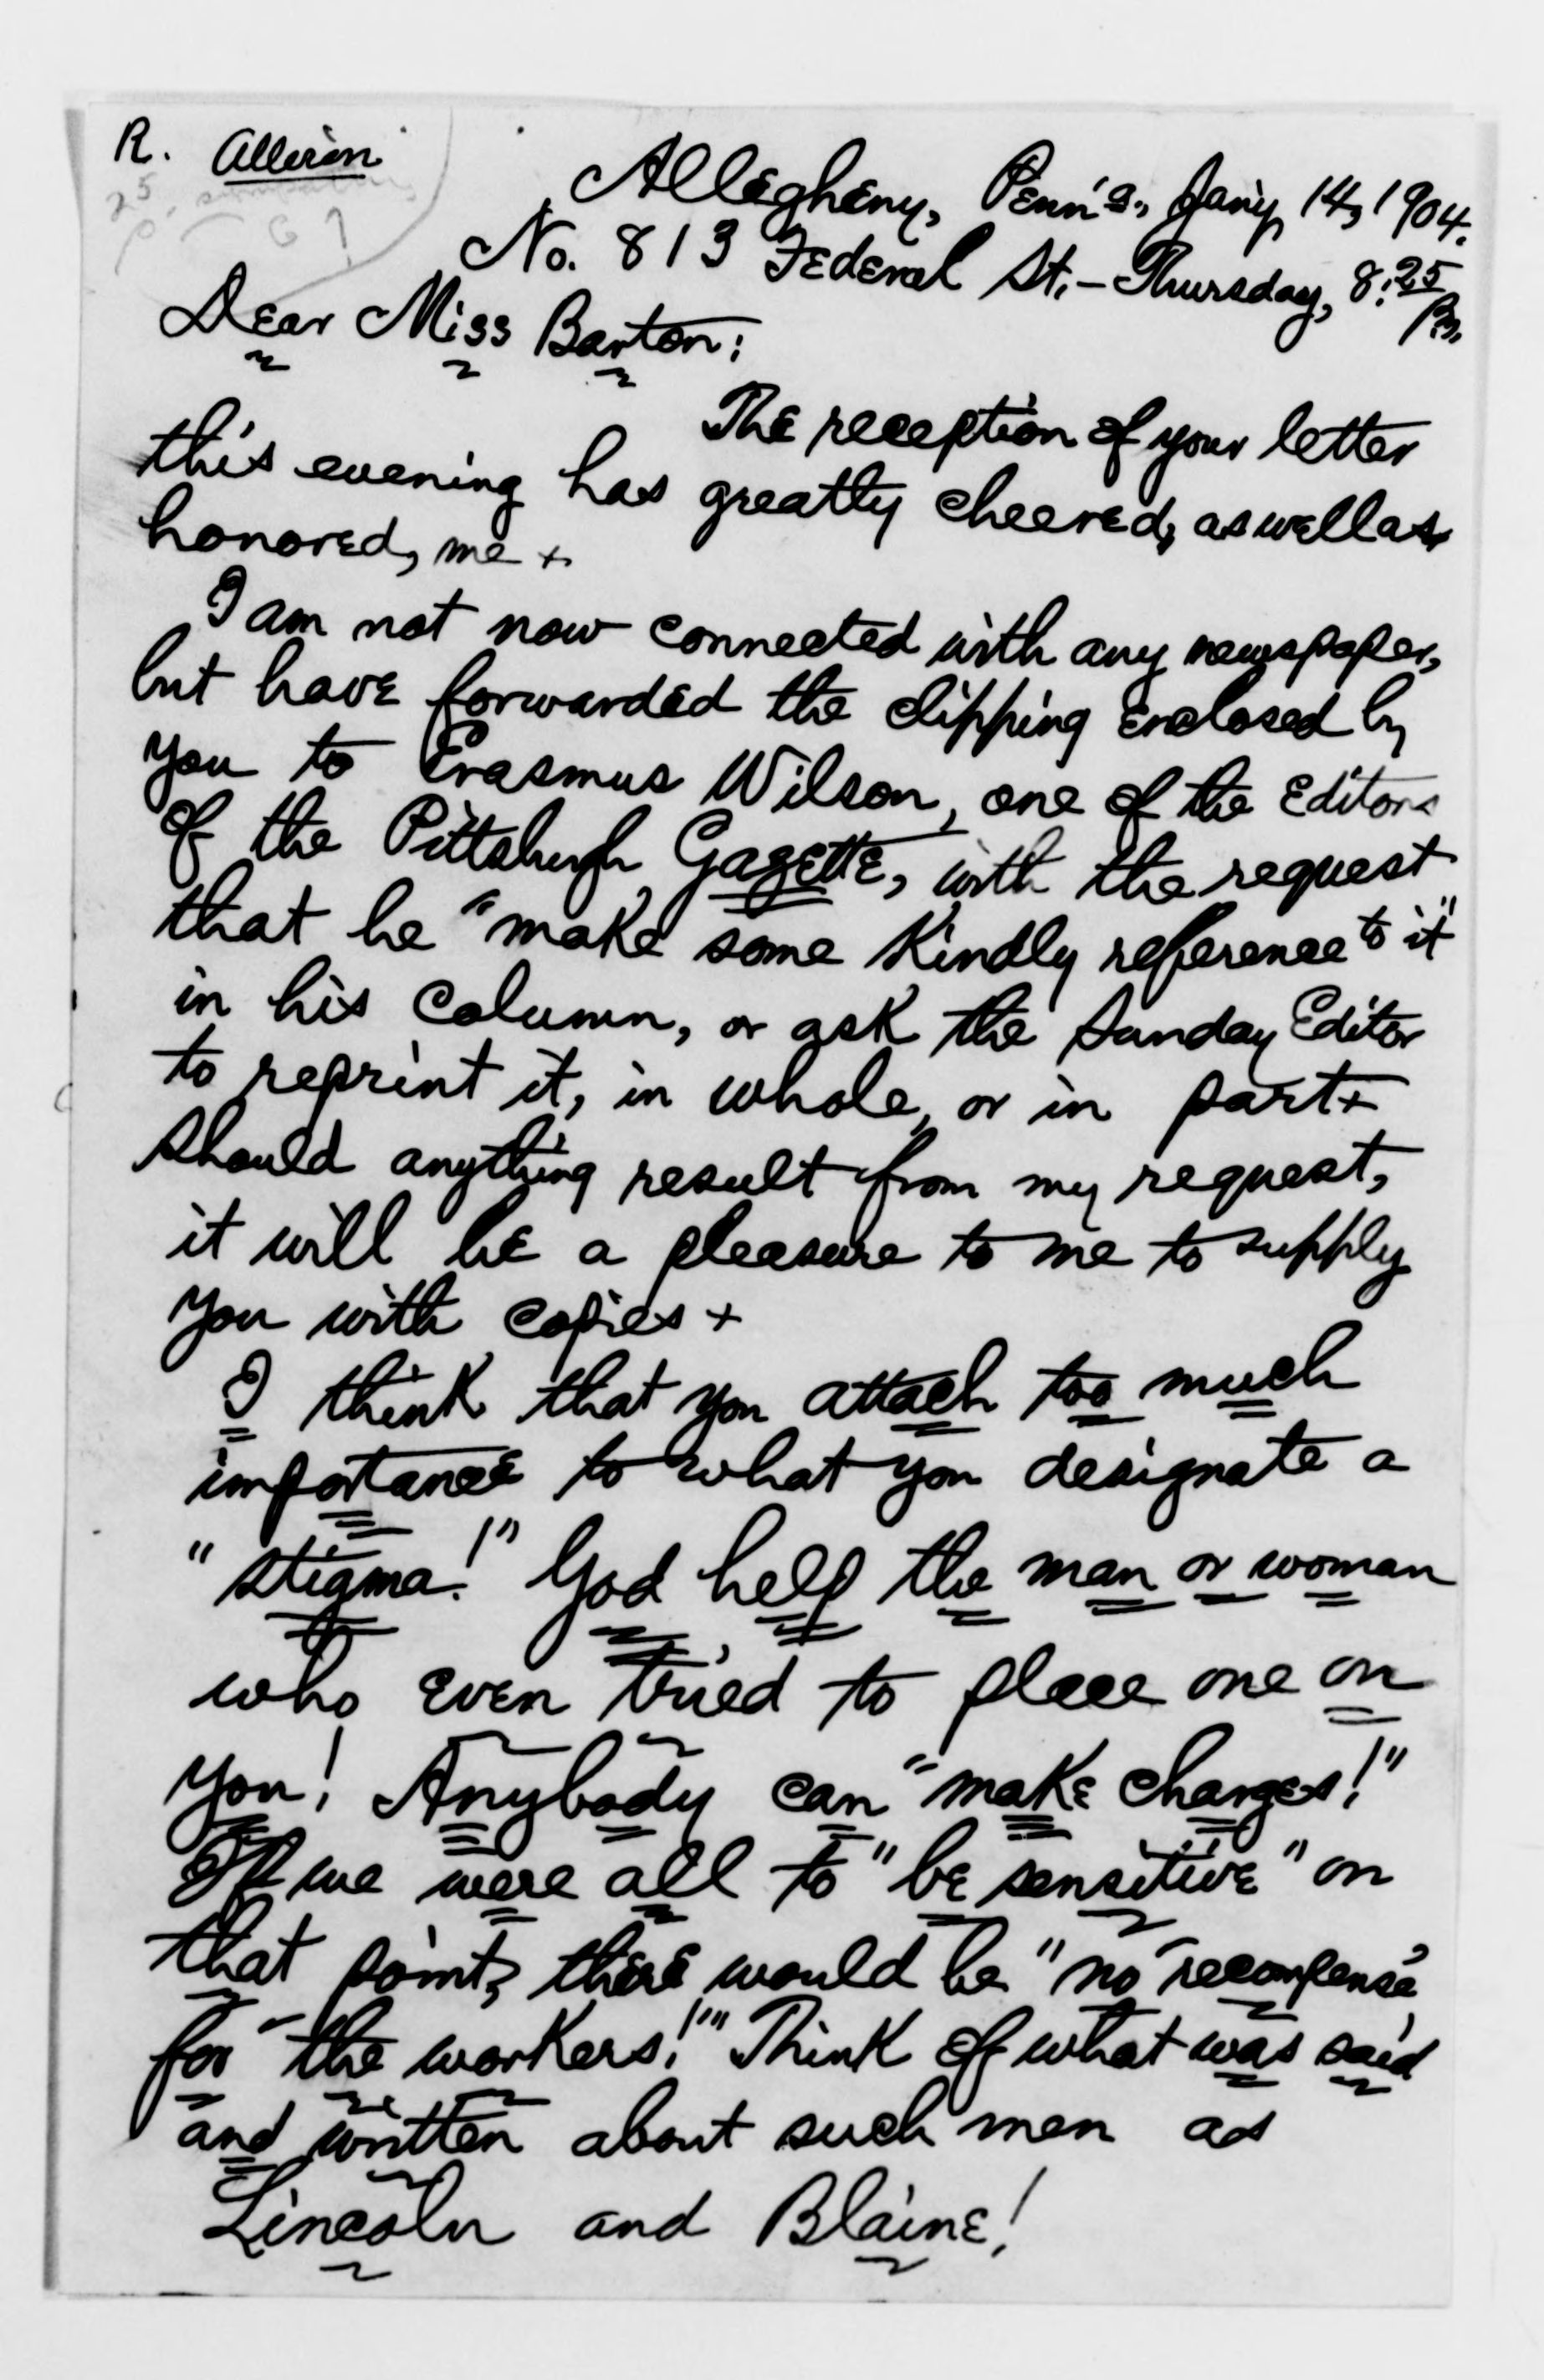 R. Allerin
Allegheny, Penn'a., Jan'y 14, 1904.
No. 813 Federal St. - Thursday, 8:25 P.M.
Dear Miss Barton:
The reception of your letter
this evening has greatly cheered, as well as
honored, me +
I am not now connected with any newspaper,
but have forwarded the clipping enclosed by
you to Erasmus Wilson, one of the Editors
of the Pittsburgh Gazette, with the request
that he "make some kindly reference to it"
in his column, or ask the Sunday Editor
to reprint it, in whole, or in part +
Should anything result from my request,
it will be a pleasure to me to supply
you with copies +
I think that you attach too much
importance to what you designate a
"stigma!" God help the man or woman
who even tried to place one on
you! Anybody can "make charges!"
If we were all to "be sensitive" on
that point, there would be "no 'recompense
for the workers!'" Think of what was said
and written about such men as
Lincoln and Blaine!